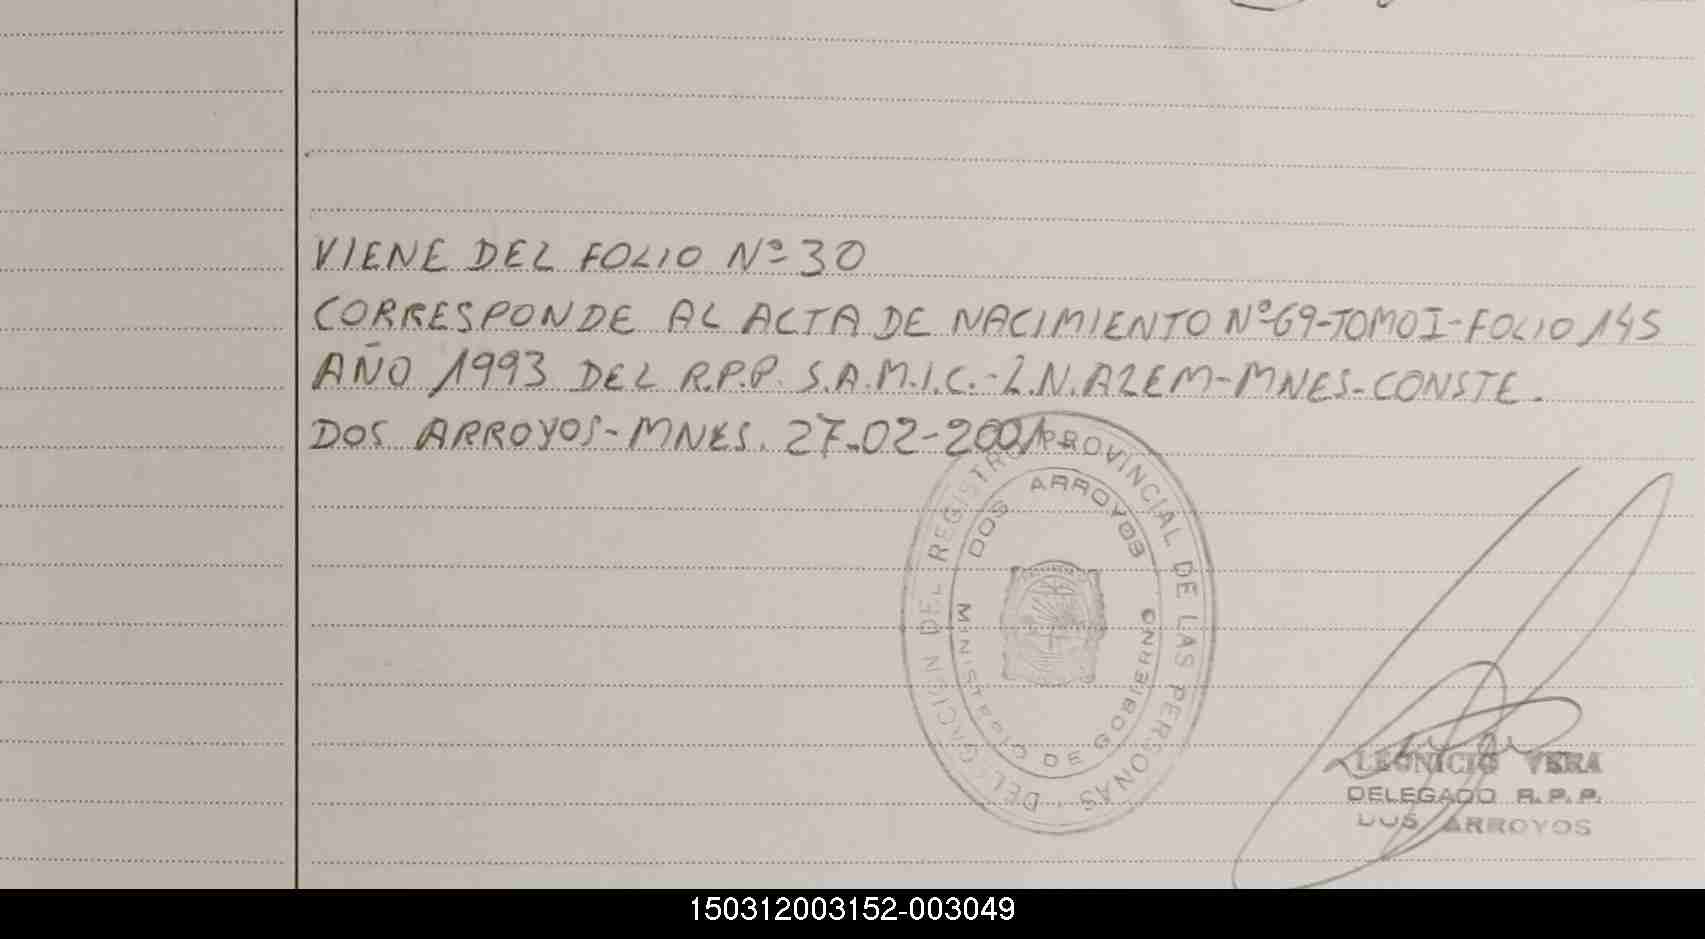 VIENE DEL FOLIO Nº 30
CORRESPONDE AL ACTA DE NACIMIENTO Nº 69-TOMO I-FOLIO 145
AÑO 1993 DEL R.P.P. S.A.M.I.C.-L.N.ALEM-MNES-CONSTE.
DOS ARROYOS-MNES. 27-02-2001
DELEGACION DEL REGISTRO PROVINCIAL DE LAS PERSONAS
DOS ARROYOS
MINISTERIO DE GOBIERNO
LEONICIO VERA
DELEGADO R.P.P.
DOS ARROYOS
150312003152-003049